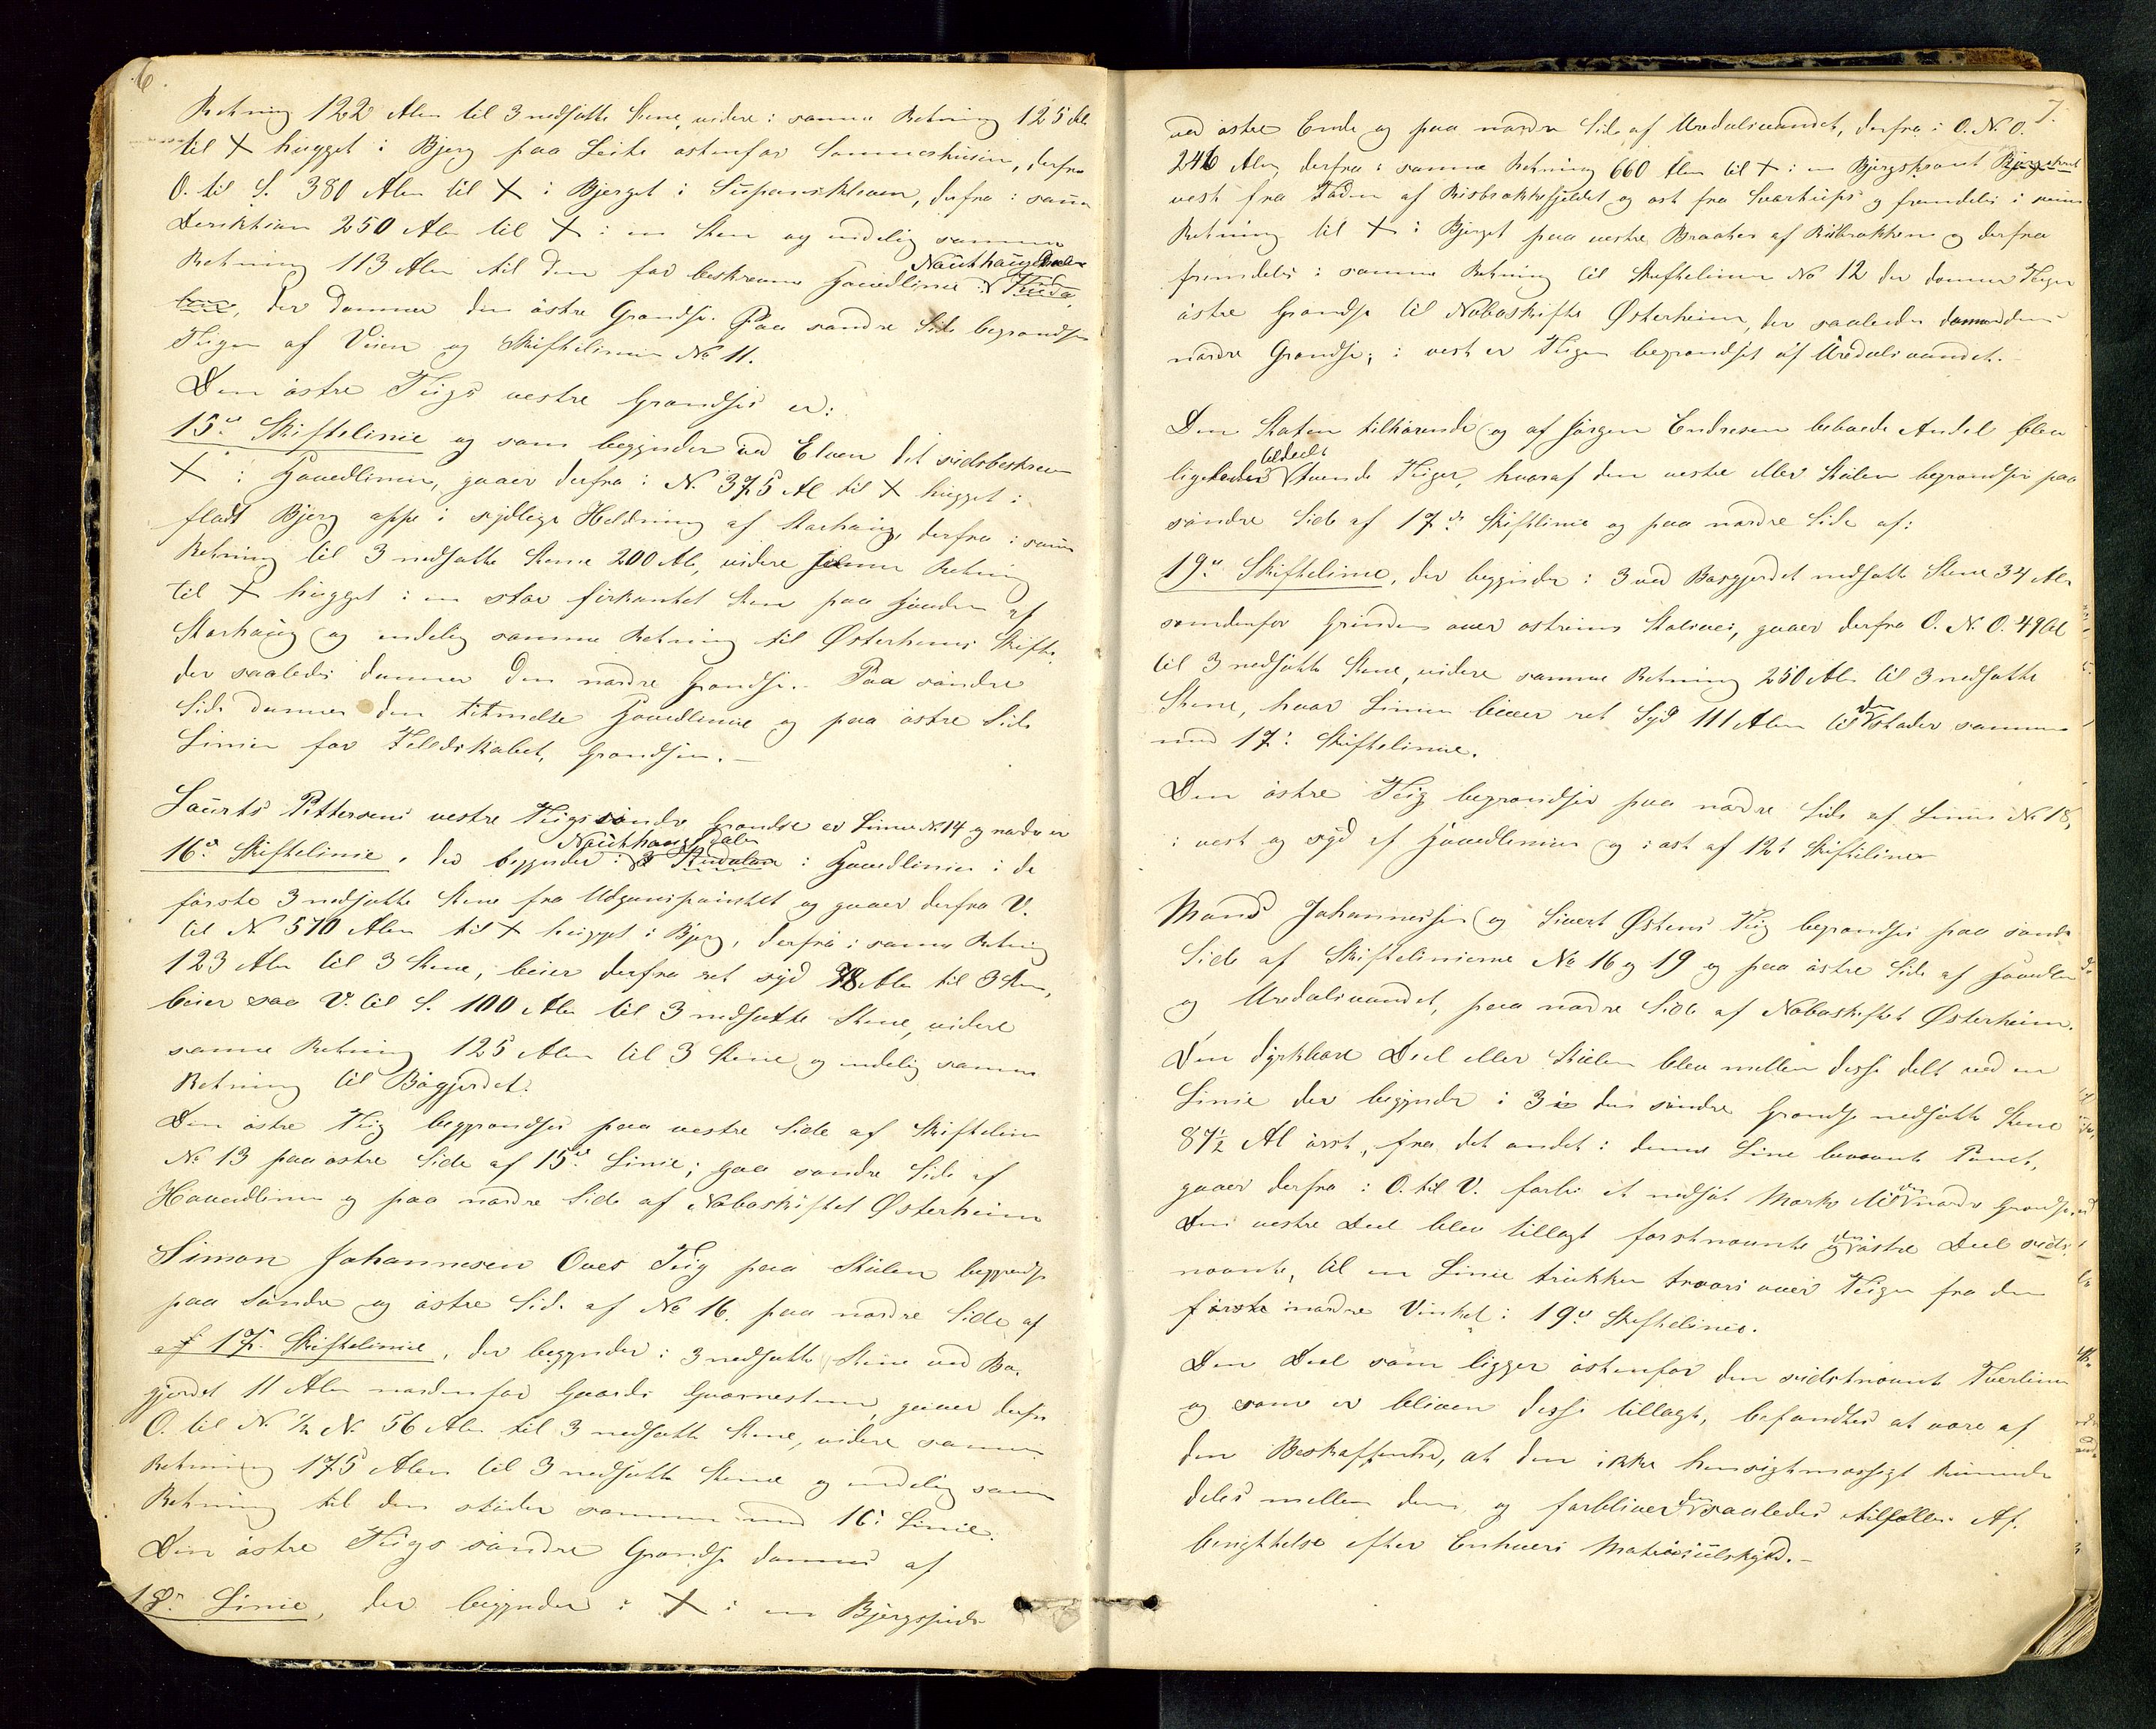 6
Retning 122 Alen til 3 nedsatte Stene, videre i samme Retning 125 Al.
til X hugget i Bjerg paa Leite ostenfor Sommerhusene, derfra
O. til S. 380 Alen til X i Bjerget i derfra i samme
Deriktion 250 Alen til X i en Sten og endelig samme
Retning 113 Alen til den før beskrevne Hovedlinie i
Nauthaugdalen
der danner den östre Grændse. Paa søndre Side begrændses
Teigen af Veien og Skiftelinien No 11.
Den østre Teigs vestre Grændse er:
15de Skiftelinie og som begynder ved Elven det sidsbeskrevne
X i Hovedlinien, gaaer derfra i N. 375 Al til X hugget i
fladt Bjerg oppe i sydlige Heldning af Storhaug, derfra i samme
Retning til 3 nedsatte Stene 200 Al, videre samme Retning
til X hugget i en stor firkantet Sten paa af
Storhaug og endelig samme Retning til Østerheims Skifte
der saaledes danner den nordre Grændse. Paa søndre
Side danner den titmeldte Hovedlinie og paa østre Side
Linien for Felledskabet, Grændsen.—
Laurits Pettersens vestre Teigs søndre Grændse er Linie No 14 og nordre er
Nauthaugdalen
16de Skiftelinie, der begynder i i Hovedlinien i de
første 3 nedsatte Stene fra Udganspunktet og gaaer derfra V.
til N 510 Alen til X hugget i Bjerg, derfra i samme Retning
123 Alen til 3 Stene, beier derfra ret syd 78 Alen til 3 Stene,
beier saa V. til S. 100 Alen til 3 nedsatte Stene, videre
samme Retning 125 Alen til 3 Stene og endelig samme
Retning til Bøgjerdet.
Den östre Teig begrændses paa vestre Side af Skiftelinie
No 13 paa østre Side af 15de Linie; paa søndre Side af
Hovedlinien og paa nordre Side af Naboskiftet Østerheim
Simon Johannesen Oves Teig paa Stølen begrændses
paa Søndre og østre Side af No 16. paa nordre Side af
af 17de Skiftelinie, der begynder i 3 nedsatte Stene ved Bø-
gjerdet 11 Alen nordenfor Gaards gaaer derfra
O. til N. ½ N. 56 Alen til 3 nedsatte Stene, videre samme
Retning 175 Alen til 3 nedsatte Stene og endelig samme
Retning til den støder sammen med 16de Linie.
Den østre Teigs søndre Grændse dannes af
18de Linie, der begynder i X i en Bjergs
7.
ved østre Ende og paa nordre Side af Uredalsvandet, derfra i O. N. O.
246 Alen derfra i samme Retning 660 Alen til X i en Bjergskrænt
vest fra Foden af og ost fra og fremdeles i samme
Retning til X i Bjerget paa vestre af og derfra
fremdeles i samme Retning til Skiftelinien No 12 der danner Teigens
østre Grændse til Naboskifte Østerheim, der saaledes danner dens
nordre Grændse; i vest er Teigen begrændset af Uredalsvandet.
Den Staten tilhørende og af Jørgen Endresen beboede Andel blev
tildeelt
ligeledes tvende Teiger, hvoraf den vestre eller Stølen begrændses paa
søndre Side af 17de Skiftlinie og paa nordre Side af:
19de Skiftelinie, der begynder i 3 ved Bøgjerdet nedsatte Stene 34 Alen
søndenfor Grinden over gaaer derfra O. N. O. 49 Al
til 3 nedsatte Stene, videre samme Retning 250 Alen til 3 nedsatte
Stene, hvor Linien beier ret Syd 111 Alen til den støder sammen
med 17de Skiftelinie.
Den østre Teig begrændses paa nordre Side af Linie No 18,
i vest og syd af Hovedlinien og i ost af 12te Skiftelinie
Mons Johannessen og Sivert Østens Teig begrændses paa søndre
Side af Skiftelinierne No 16 og 19 og paa østre Side af Hovedlinien
og Uredalsvandet, paa nordre Side af Naboskiftet Østerheim.
Den dyrkbare Deel eller Stølen blev mellem disse delt ved en
Linie der begynder i 3 i den søndre Grændse nedsatte Stene
87½ Al øst, fra det andet i denne Linie benævnte Punct,
gaaer derfra i O. til V. forbi et nedsat Mærke til den nordre Grændse.
Den vestre Deel blev tillagt førstnævnte og den østre Deel sidst-
nævnte, til en Linie trukken tværs over Teigen fra den
første nordre Vinkel i 19de Skiftelinie.
Den Deel som ligger østenfor den sidstnævnte Tverlinie
og som er bleven disse tillagt, befandtes at være af
den Beskaffenhed, at den ikke hensigtmæssigt kunde
deles mellem dem, og forbliver den saaledes tilfælles Af-
benyttelse efter Enhvers Matriculskyld.—